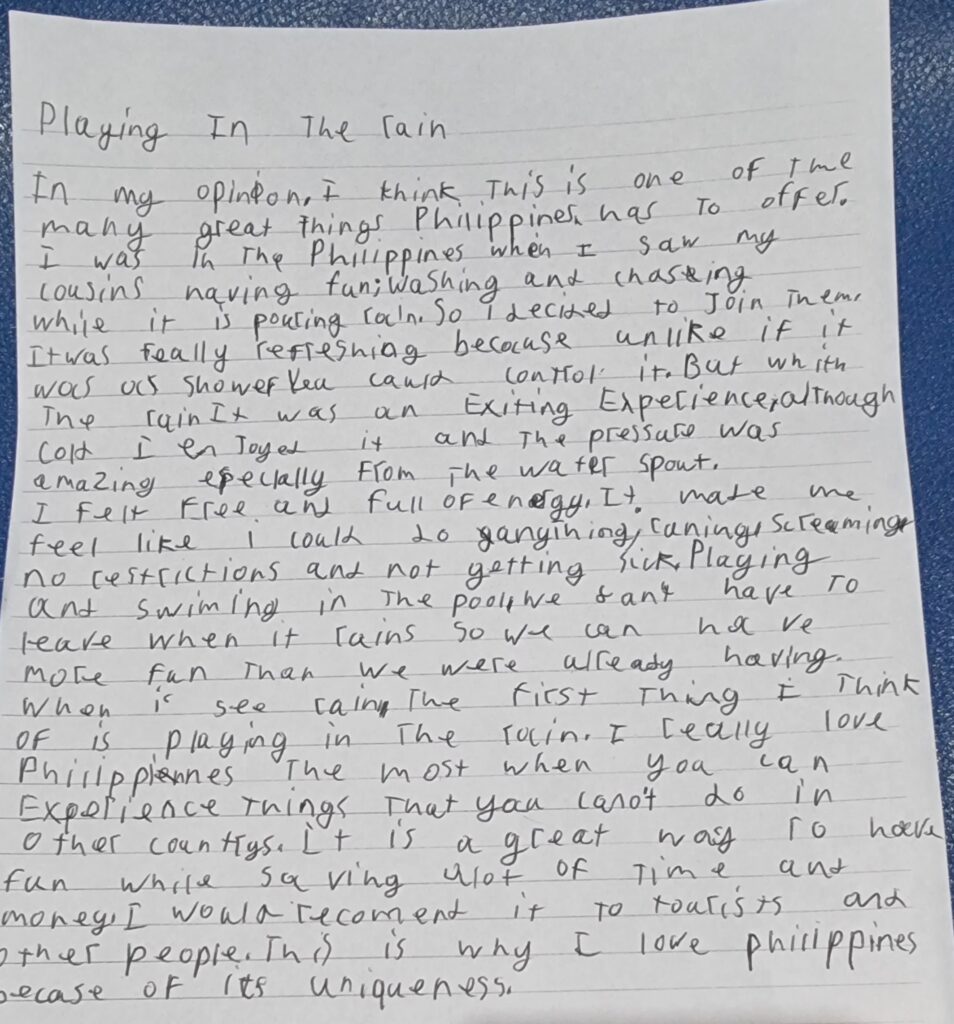 Playing In The rain
In my opinion, I think This is one of The
many great things Philippines has To offer.
I was In The Philippines when I saw my
cousins having fun; washing and chasing
while it is pouring rain. So i decided to Join Them.
It was really refreshing because unlike if it
was as shower You could control it. But whith
The rain It was an Exiting Experience, although
cold I en Joyed it and The pressure was
amazing especially From The water spout.
I felt Free and full of energy. It made me
feel like I could do anything, runing, screaming
no restrictions and not getting sick. Playing
and swiming in The pool, we dant have To
leave when it rains so we can ha ve
more fun Than we were already having.
When is see rain, The first Thing I Think
OF is playing in The rain. I really love
Philippiennes The most when you can
Experience Things That you canot do in
other countrys. It is a great way To have
fun while sa ving alot OF Time and
money. I would recoment it To tourists and
other people. This is why I love philippines
becase OF its uniqueness.